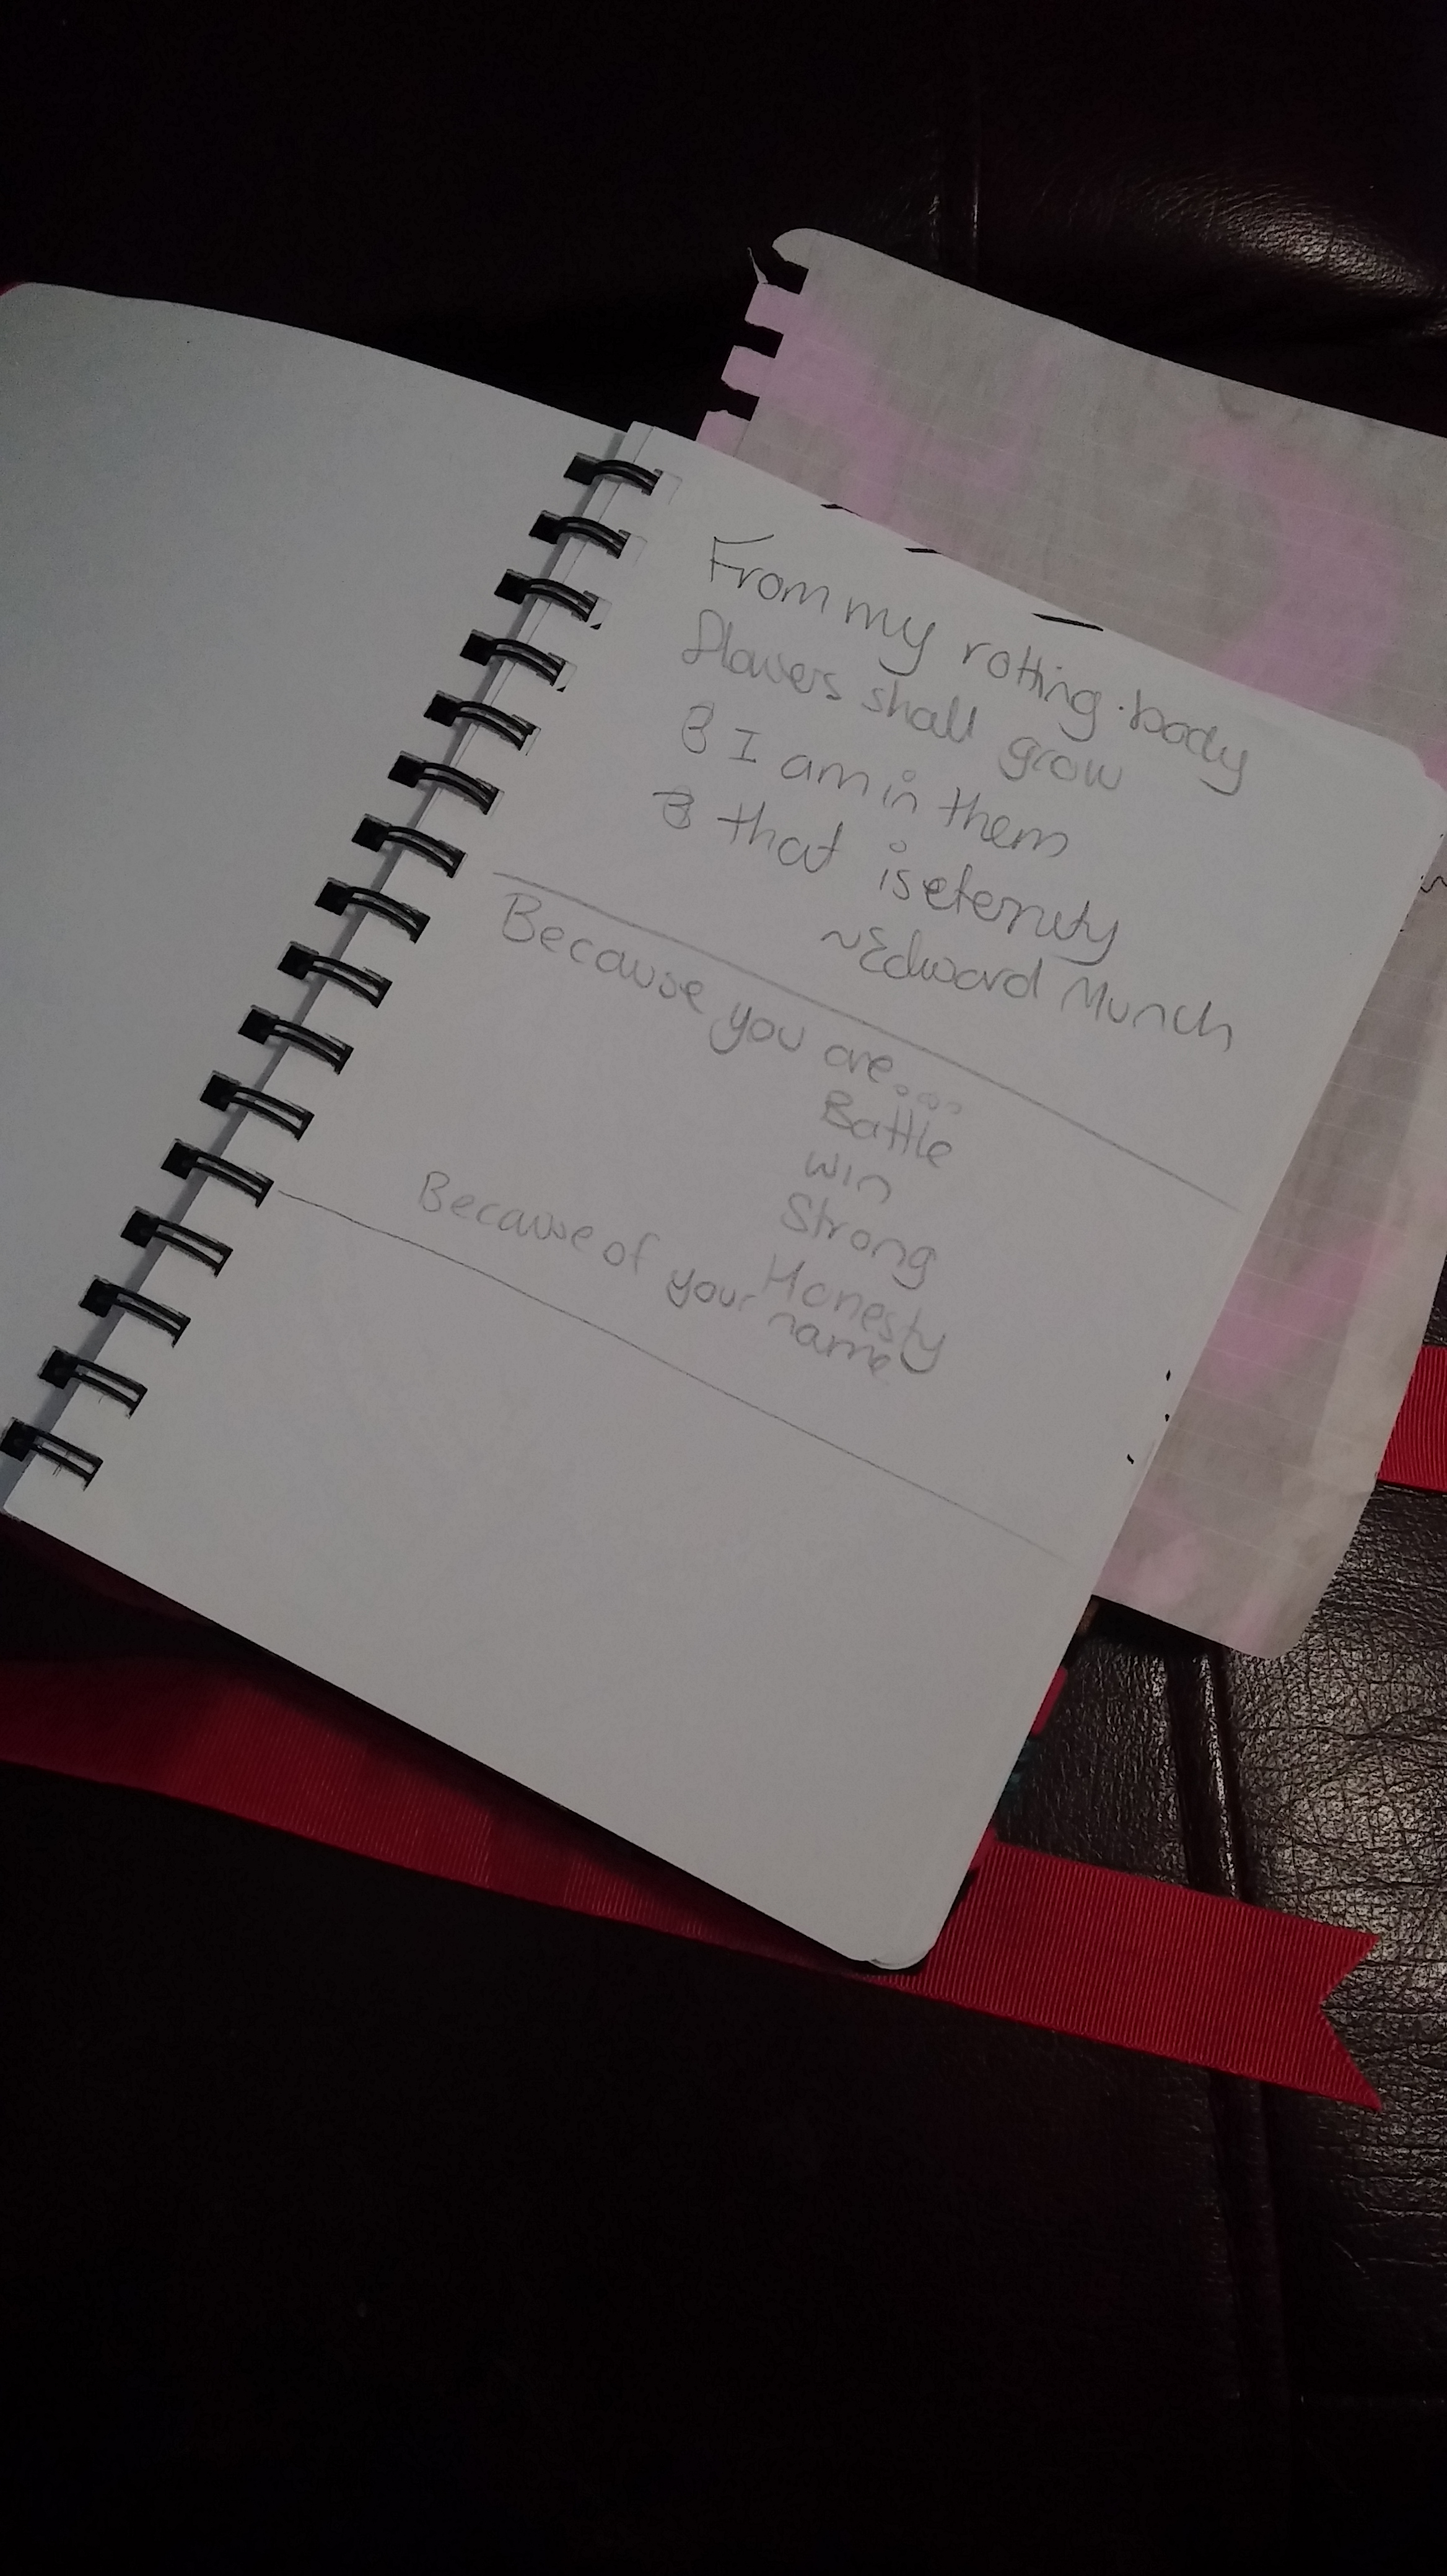 From my rotting body
flowers shall grow
& I am in them
& that is eternity
~Edward Munch
Because you are....
Battle
win
Strong
Honesty
Because of your name